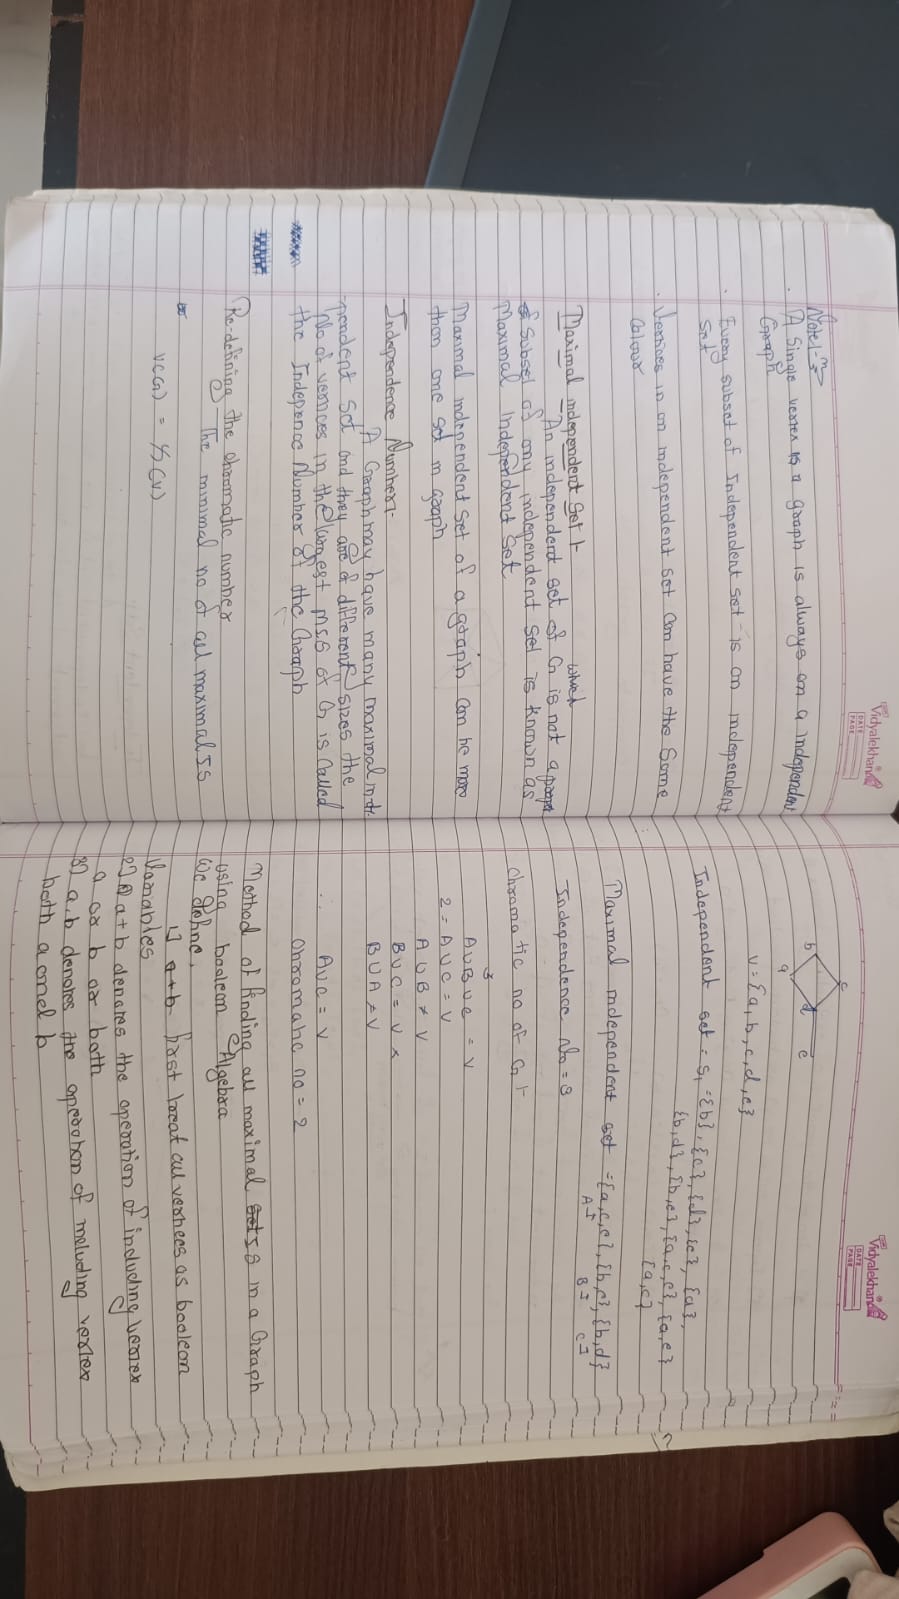 Vidyalekhan
DATE
PAGE
Note :-
. A Single vertex is a graph is always on a independent
Graph
. Every subset of Independent set is on independent
Set
. Vertices in on independent set can have the Same
Colour
Maximal independent Set :-
which
An independent set of G is not a proper
Subset of any independent set is known as
Maximal Independent Set
Maximal independent set of a graph can be more
than one set in graph
Independence Number :-
A Graph may have many maximal inde-
pendent set and they are of different sizes the
No of vertices in the largest MIS of G is called
the Indepence Number of the Graph
Re-defining the chromatic number
The minimal no of all maximal IS
Vidyalekhan
DATE
PAGE
c
b d e
a
V = {a, b, c, d, e}
Independent set = S₁ = {b}, {c}, {d}, {e}, {a},
{b,d}, {b,e}, {a,c,e}, {a,e}
{a,c}
Maximal independent set = {a,c,e}, {b,e}, {b,d}
A B C
Independence No = 3
Chromatic no of G :-
3
A∪B∪C = V
2 = A∪C = V
A∪B ≠ V
B∪C = V ×
B∪A ≠ V
A∪C = V
Chromatic no = 2
Method of finding all maximal IS in a Graph
using boolean Algebra
We define,
1) first locat all vertices as boolean
Variables
2) a+b denotes the operation of including vertex
a or b or both
3) a.b denotes the operation of including vertex
both a and b